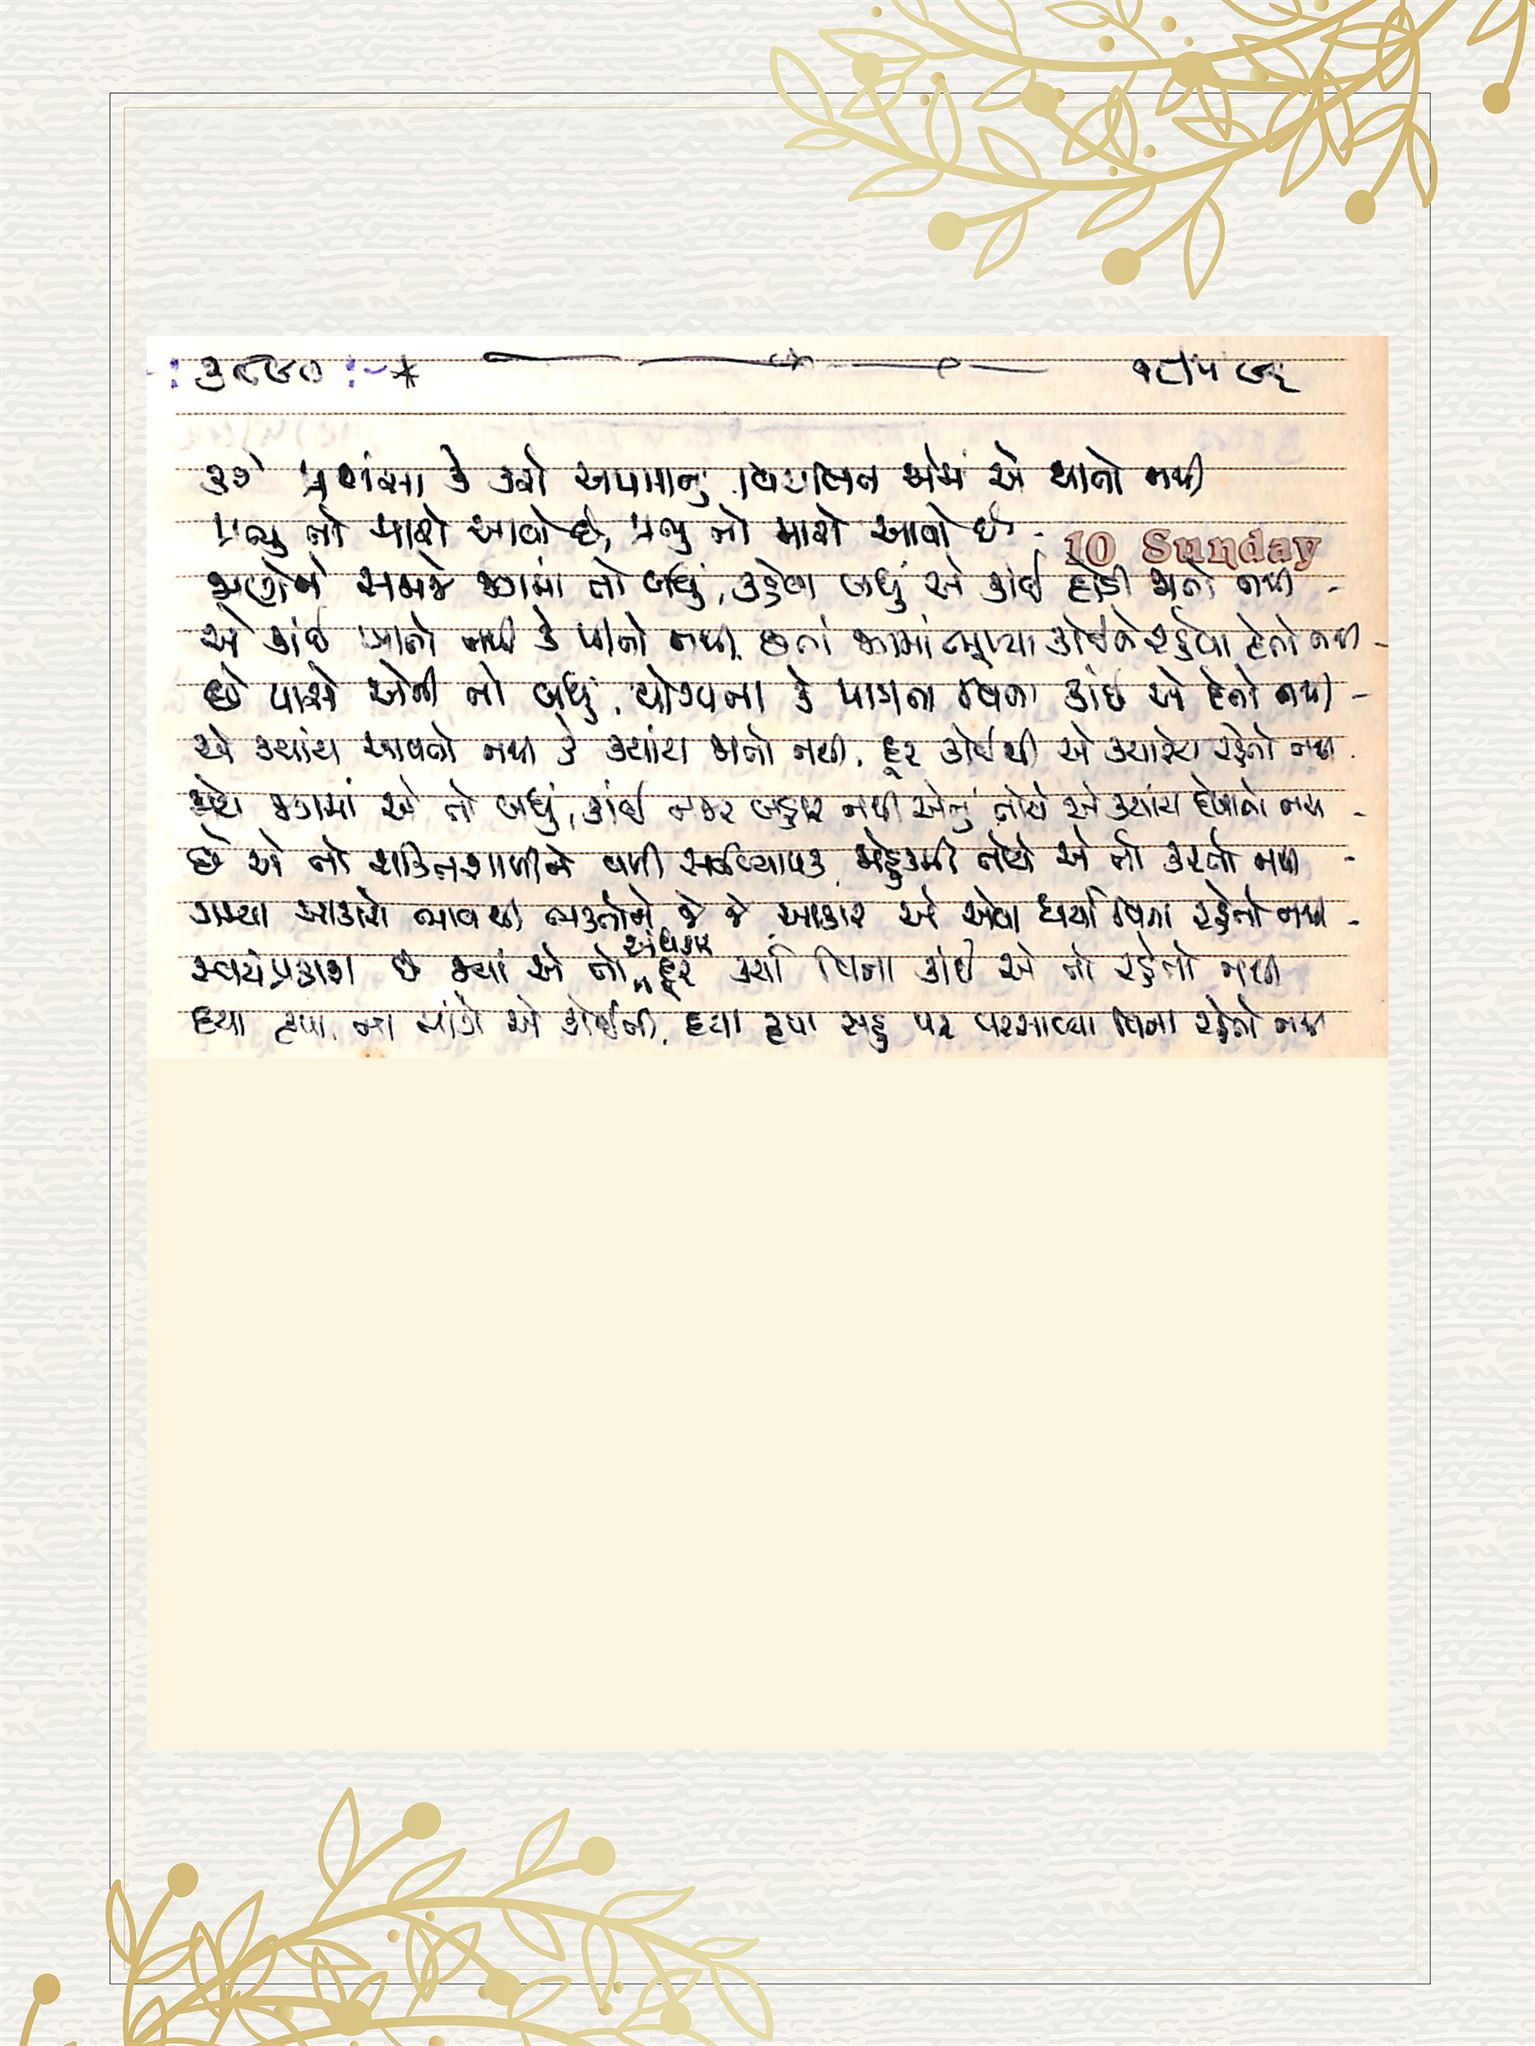 :૩૮૯૦ :- * ૧૮/૫/૯૨
કરે પ્રશંસા કે કરો અપમાનું વિચલિત એમાં એ થાતો નથી
પ્રભુ તો મારો આવો છે, પ્રભુ તો મારો આવો છે
10 Sunday
જાણે ને સમજે જગમાં તો બધું, કહેવા બધું એ કાંઈ દોડી જાતો નથી -
એ કાંઈ ખાતો નથી કે પીતો નથી, છતાં જગમાં ભૂખ્યા કોઈને રહેવા દેતો નથી -
છે પાસે એની તો બધું, યોગ્યતા કે પાત્રતા વિના કાંઈ એ દેતો નથી -
એ ક્યાંય આવતો નથી કે ક્યાંય જાતો નથી, દૂર કોઈથી એ ક્યારેય રહેતો નથી
જુએ જગમાં એ તો બધું, કાંઈ નજર બહાર નથી એનું તોયે એ ક્યાંય દેખાતો નથી -
છે એ તો શક્તિશાળી ને વળી સર્વવ્યાપક, મનમાની તોયે એ તો કરતો નથી -
ગમ્યા આકારો ભાવથી ભક્તોને જે જે, આકાર એ એવા ધર્યા વિના રહેતો નથી -
સ્વયંપ્રકાશ છે જ્યાં એ તો અંધકાર દૂર કર્યા વિના કાંઈ એ તો રહેતો નથી
દયા કૃપા ના માંગે એ કોઈની, દયા કૃપા સહુ પર વરસાવ્યા વિના રહેતો નથી